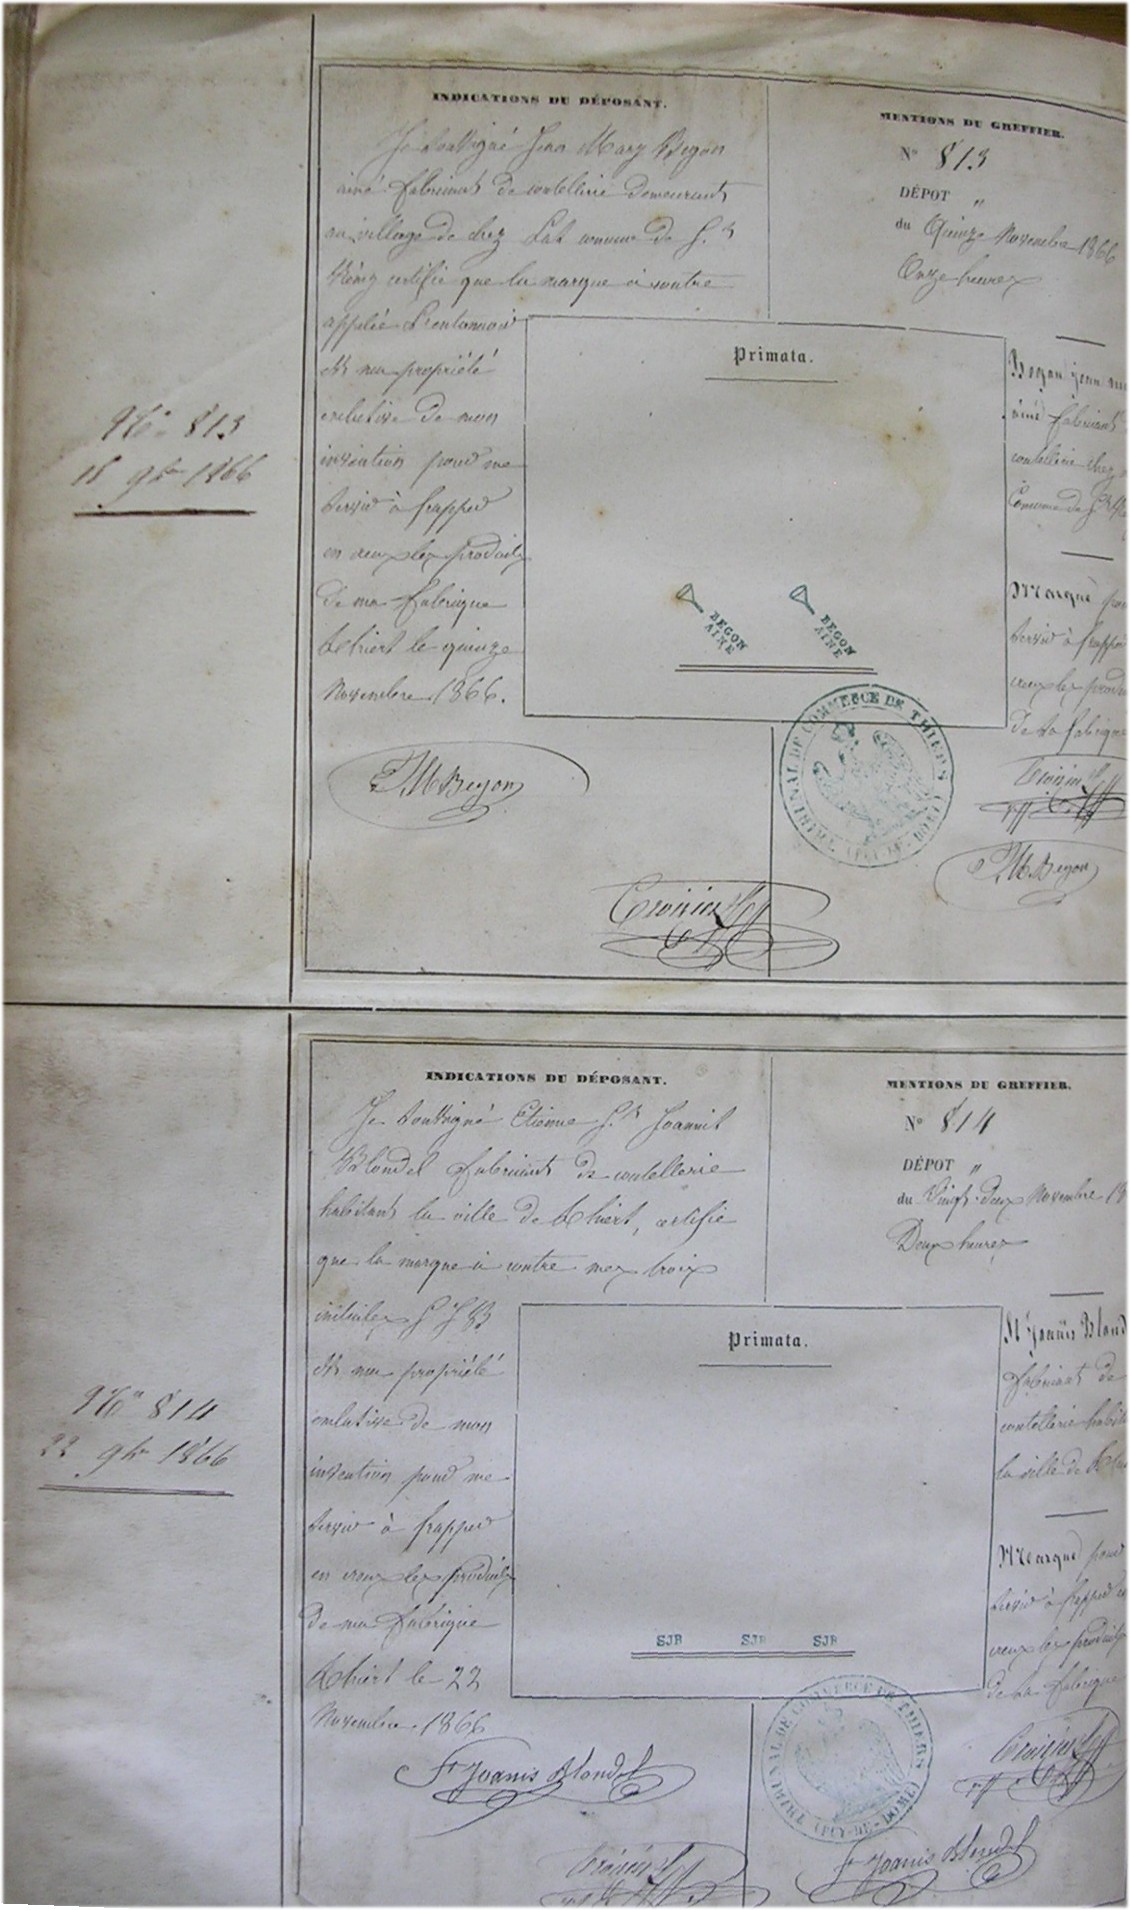 INDICATIONS DU DÉPOSANT.
Je soussigné Jean Mary Begon
ainé fabricant de coutellerie demeurant
au village de chez Lat commune de St
Rémy certifie que la marque ci contre
appelée
est ma propriété
exclusive de mon
invention pour me
servir à frapper
en creux les produits
de ma fabrique
Thiers le quinze
Novembre 1866.
JM Begon
MENTIONS DU GREFFIER.
N° 813
DÉPOT "
du Quinze Novembre 1866
Onze heures
Primata.
BEGON
AINE
BEGON
AINE
Begon jean
ainé fabricant
coutellerie chez
Commune de St
Marque pour
servir à frapper
creux les
de sa fabrique
JM Begon
TRIBUNAL DE COMMERCE DE THIERS (PUY-DE-DOME)
N° 813
15 9bre 1866
INDICATIONS DU DÉPOSANT.
Je soussigné Etienne St Joannis
Blondel fabricant de coutellerie
habitant la ville de Thiers, certifie
que la marque ci contre mes trois
initiales S J B
est ma propriété
exclusive de mon
invention pour me
servir à frapper
en creux les produits
de ma fabrique
Thiers le 22
Novembre 1866
St Joanis Blondel
MENTIONS DU GREFFIER.
N° 814
DÉPOT "
du Vingt-deux Novembre 18
Deux heures
Primata.
SJB SJB SJB
St Joanis Blond
fabricant de
coutellerie
la ville de
Marque pour
servir à frapper
creux les produits
de sa fabrique
St Joanis Blondel
TRIBUNAL DE COMMERCE DE THIERS (PUY-DE-DOME)
N° 814
22 9bre 1866